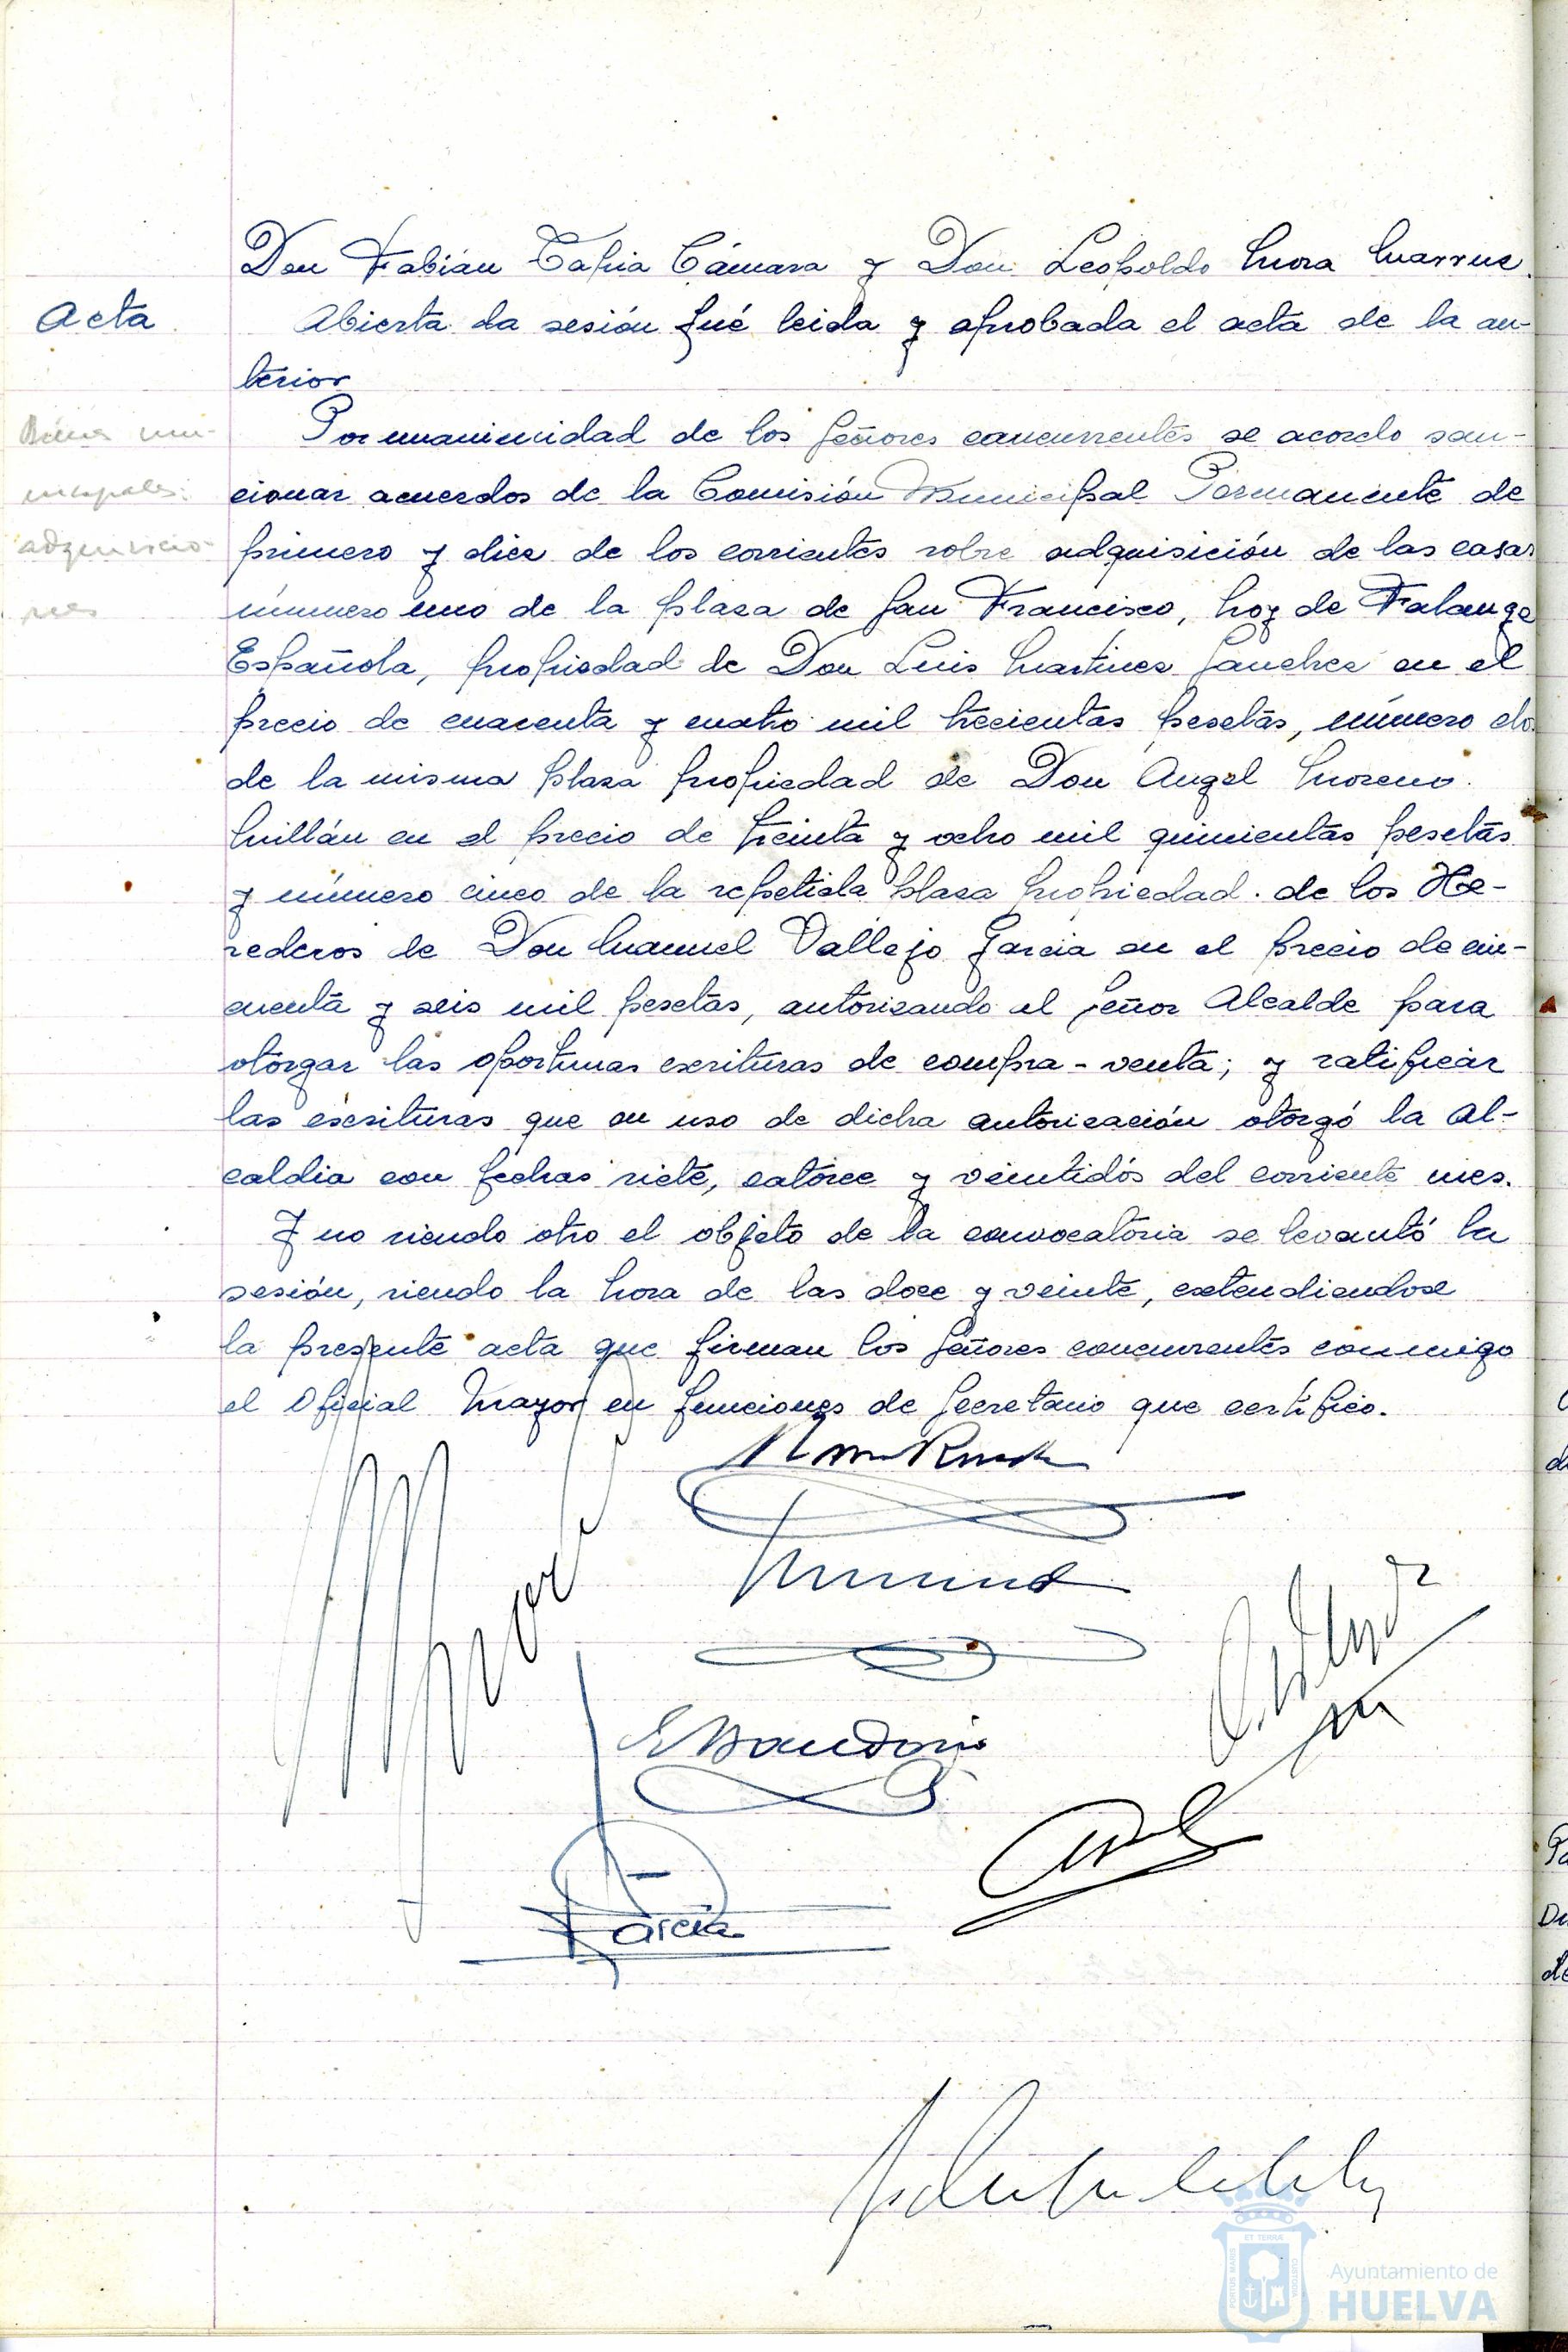 Don Fabián Tapia Cámara y Don Leopoldo Mora Marrue.
Acta.
Abierta la sesión fué leida y aprobada el acta de la an-
terior
Bienes mu-
nicipales:
adquisicio-
nes
Por unanimidad de los Señores concurrentes se acordo san-
cionar acuerdos de la Comisión Municipal Permanente de
primero y diez de los corrientes sobre adquisición de las casas
número uno de la plaza de San Francisco, hoy de Falange
Española, propiedad de Don Luis Martinez Sanchez en el
precio de cuarenta y cuatro mil trecientas pesetas, número dos
de la misma plaza propiedad de Don Angel Moreno.
Millán en el precio de treinta y ocho mil quinientas pesetas
y número cinco de la repetida plaza propiedad. de los He-
rederos de Don Manuel Vallejo Garcia en el precio de cin-
cuenta y seis mil pesetas, autorizando al Señor Alcalde para
otorgar las oportunas escrituras de compra-venta; y ratificar
las escrituras que en uso de dicha autorización otorgó la Al-
caldia con fechas siete, catorce y veintidós del corriente mes.
Y no siendo otro el objeto de la convocatoria se levantó la
sesión, siendo la hora de las doce y veinte, extendiendose
la presente acta que firman los Señores concurrentes conmigo
el Oficial Mayor en funciones de Secretario que certifico.
Garcia
PORTUS MARIS ET TERRAE CUSTODIA
Ayuntamiento de
HUELVA